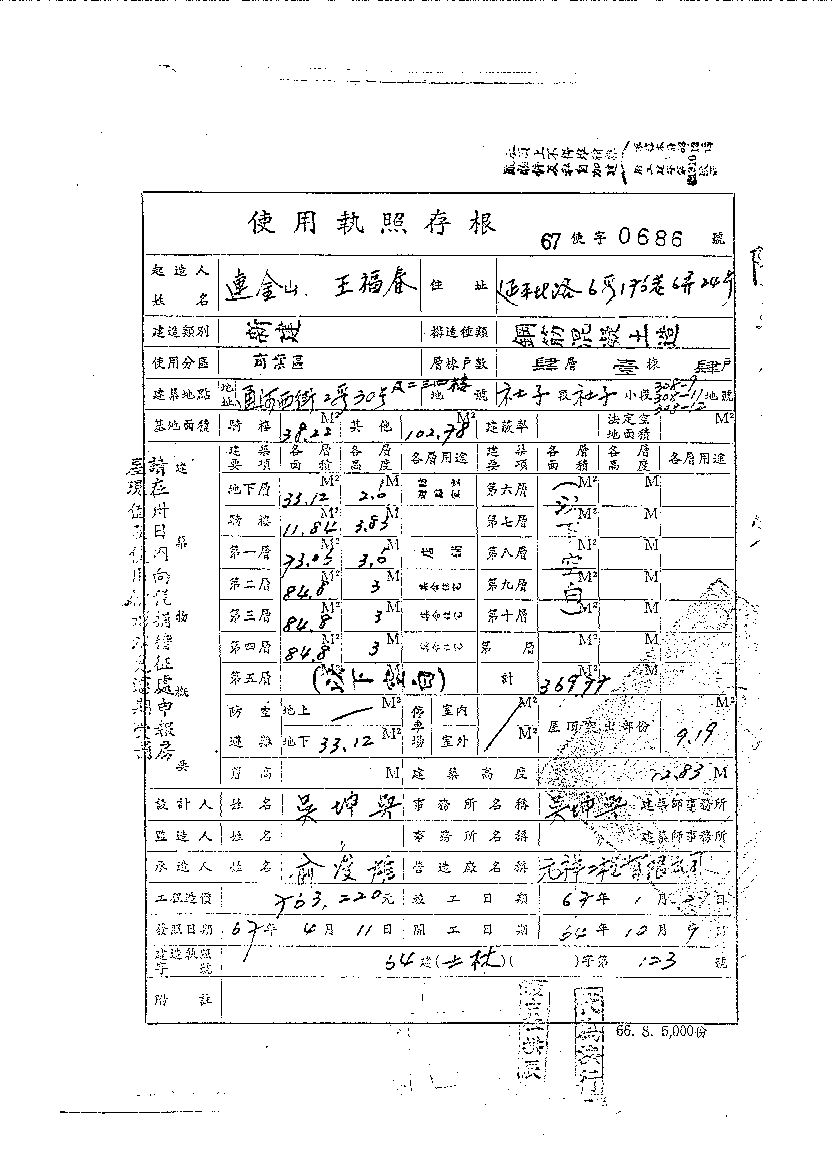 使用執照存根
67 使字 0686 號
起造人姓名 連金山、王福春 住址 延平北路6段176巷6弄24号
建造類別 新建 構造種類 鋼筋混凝土造
使用分區 商業區 層棟戶數 肆層 壹棟 肆戶
建築地點 地址 通河西街2段30号及二三四樓 地號 社子段社子小段 308-9 308-11 308-12 地號
基地面積 騎樓 38.22 M² 其他 102.78 M² 建蔽率 法定空地面積 M²
建築要項 各層面積 各層高度 各層用途 建築要項 各層面積 各層高度 各層用途
地下層 33.12 M² 2.6 M 第六層 M² M
騎樓 11.84 M² 3.85 M 第七層 M² M
第一層 M² 3.6 M 第八層 M² M
第二層 84.8 M² 3 M 第九層 M² M
第三層 84.8 M² 3 M 第十層 M² M
第四層 84.8 M² 3 M 第 層 M² M
第五層 M² M 計 M² M
(以下空白)
防空避難 地上 M² 停車場 室內 M² 屋頂突出部份 9.19 M²
地下 33.12 M² 室外 M²
簷高 M 建築高度 12.83 M
建築物概要
設計人 姓名 吳坤興 事務所名稱 吳坤興 建築師事務所
監造人 姓名 事務所名稱 建築師事務所
承造人 姓名 俞俊 營造廠名稱 元祥工程有限公司
工程造價 763,220元 竣工日期 67年1月 日
發照日期 67年4月11日 開工日期 64年10月9日
建造執照字號 64建(士林)( )字第 123 號
附註
66. 8. 5,000份